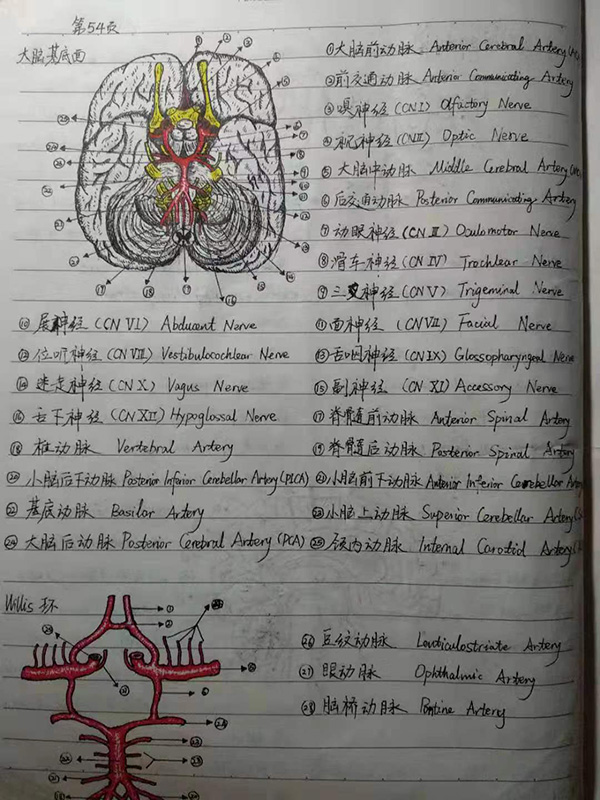 第54页
大脑基底面
①大脑前动脉 Anterior Cerebral Artery
②前交通动脉 Anterior Communicating Artery
③嗅神经(CN I) Olfactory Nerve
④视神经(CN II) Optic Nerve
⑤大脑中动脉 Middle Cerebral Artery
⑥后交通动脉 Posterior Communicating Artery
⑦动眼神经(CN III) Oculomotor Nerve
⑧滑车神经(CN IV) Trochlear Nerve
⑨三叉神经(CN V) Trigeminal Nerve
⑩展神经(CN VI) Abducent Nerve ⑪面神经(CN VII) Facial Nerve
⑫位听神经(CN VIII) Vestibulocochlear Nerve ⑬舌咽神经(CN IX) Glossopharyngeal Nerve
⑭迷走神经(CN X) Vagus Nerve ⑮副神经(CN XI) Accessory Nerve
⑯舌下神经(CN XII) Hypoglossal Nerve ⑰脊髓前动脉 Anterior Spinal Artery
⑱椎动脉 Vertebral Artery ⑲脊髓后动脉 Posterior Spinal Artery
⑳小脑后下动脉 Posterior Inferior Cerebellar Artery (PICA) ㉑小脑前下动脉 Anterior Inferior Cerebellar
㉒基底动脉 Basilar Artery ㉓小脑上动脉 Superior Cerebellar Artery
㉔大脑后动脉 Posterior Cerebral Artery (PCA) ㉕颈内动脉 Internal Carotid Artery
Willis 环
㉖豆纹动脉 Artery
㉗眼动脉 Ophthalmic Artery
㉘脑桥动脉 Pontine Artery